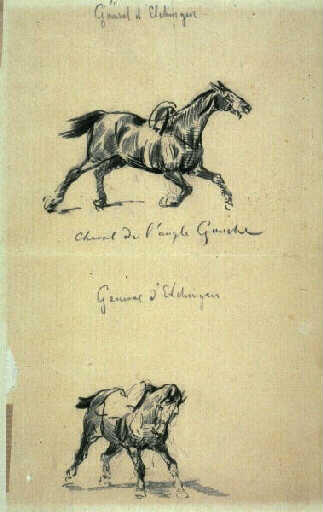 Général d'Elchingen
Cheval de l'angle Gauche
Général d'Elchingen